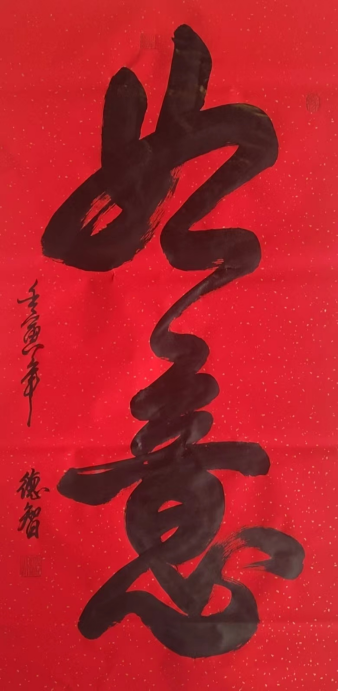 如意
壬寅年
德智